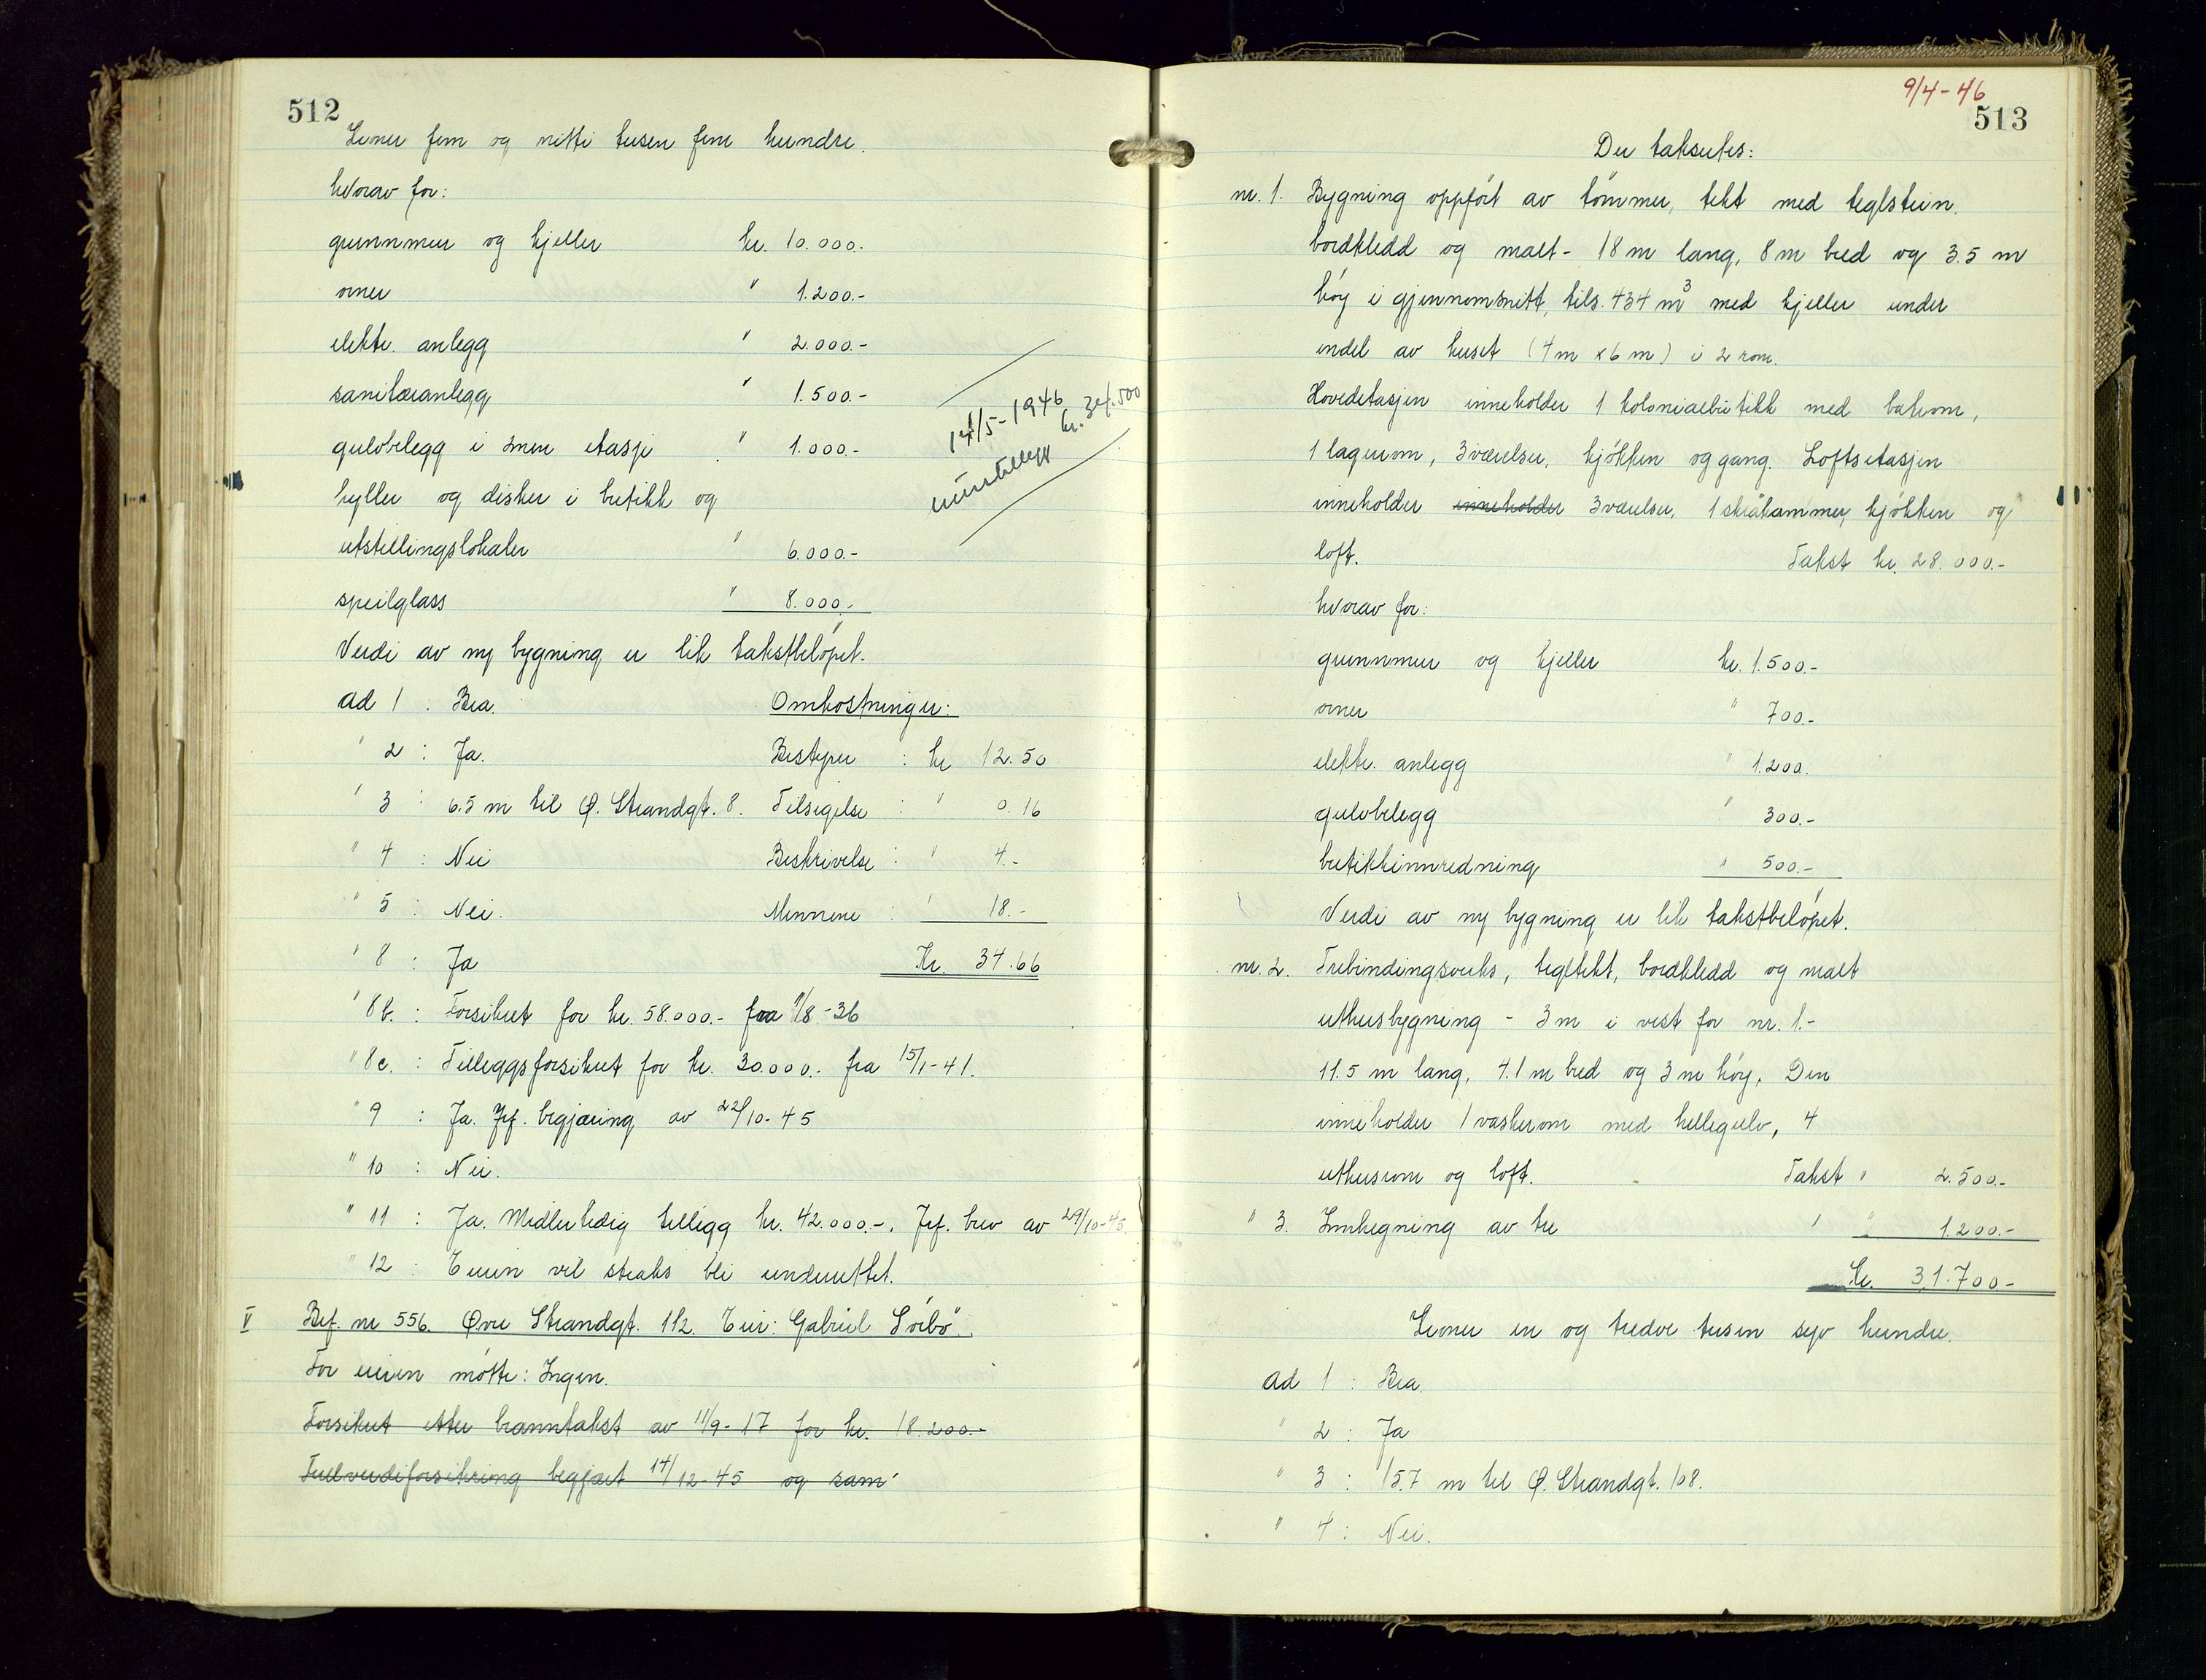 512
Kroner fem og nitti tusen fem hundre.
hvorav for:
grunnmur og kjeller kr. 10.000.-
ovner " 1.200.-
elektr. anlegg " 2.000.-
sanitæranlegg " 1.500.-
gulvbelegg i 2nen etasje " 1.000.-
hyller og disker i butikk og
utstillingslokaler " 6.000.-
speilglass " 8.000.-
14/5-1946
kr. 34.500
Verdi av ny bygning er lik takstbeløpet.
ad 1 : Bra. Omkostninger:
" 2 : Ja. Bestyrer : kr 12.50
" 3 : 6.5 m til Ø. Strandgt. 8. Tilsigelse : " 0.16
" 4 : Nei Beskrivelse : " 4.-
" 5 : Nei. Mennene : " 18.-
" 8 : Ja Kr. 34.66
" 8b. : Forsikret for kr. 58.000.- fra 1/8-36
" 8c. : Tilleggsforsikret for kr. 30.000.- fra 15/1-41.
" 9 : Ja. Jrf. begjæring av 22/10-45
" 10 : Nei.
" 11 : Ja. Midlertidig tillegg kr. 42.000.-. Jrf. brev av 29/10-45.
" 12 : Eieren vil straks bli underrettet.
V Brf. nr 556. Øvre Strandgt. 112. Eier: Gabriel Sörbö.
For eieren møtte: Ingen.
Forsikret etter branntakst av 11/9-17 for kr. 18.200.-
Fullverdiforsikring begjært 14/12-45 og sam-
9/4-46
513
Der takseres:
nr. 1. Bygning oppført av tømmer, tekt med teglstein,
bordkledd og malt - 18 m lang, 8 m bred og 3.5 m
høy i gjennomsnitt, tils. 434 m3 med kjeller under
endel av huset (4 m x 6 m) i 2 rom.
Hovedetasjen inneholder 1 kolonialbutikk med bakrom,
1 lagerrom, 3 værelser, kjøkken og gang. Loftsetasjen
inneholder inneholder 3 værelser, 1 skråkammer, kjøkken og
loft. Takst kr. 28.000.-
hvorav for:
grunnmur og kjeller kr. 1.500.-
ovner " 700.-
elektr. anlegg " 1.200.
gulvbelegg " 300.-
butikkinnredning " 500.-
Verdi av ny bygning er lik takstbeløpet.
nr. 2. Trebindingsverks, tegltekt, bordkledd og malt
uthusbygning - 3 m i vest for nr. 1.-
11.5 m lang, 4.1 m bred og 3 m høy. Den
inneholder 1 vaskerom med hellegulv, 4
uthusrom og loft. Takst " 2.500.-
" 3. Innhegning av tre " " 1.200.-
Kr. 31.700.-
Kroner en og tredve tusen syv hundre.
ad 1 : Bra.
" 2 : Ja
" 3 : 15.7 m til Ø. Strandgt. 108.
" 4 : Nei.